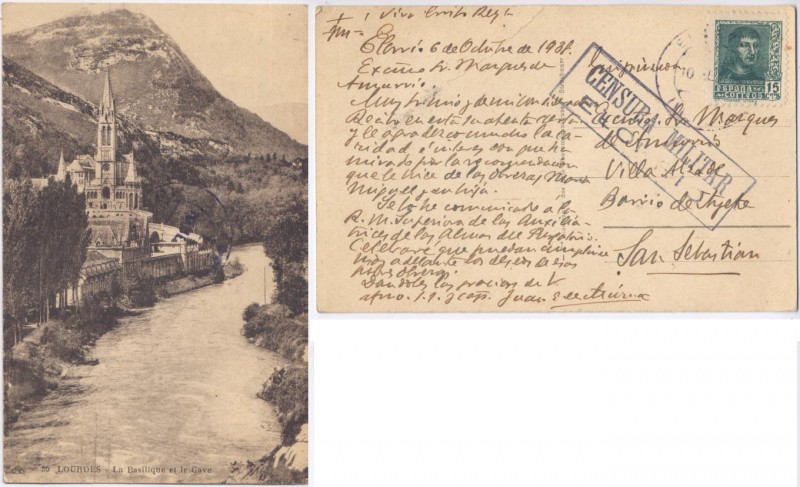 50 LOURDES - La Basilique et le Gave
¡ Viva Cristo Rey!
Elorrio 6 de Octubre de 1938.
Excmo Sr. Marques de
Muy Sr mio y de mi
Recibo en esta su atenta carta
y le agradezco mucho la ca-
ridad é interes con que ha
mirado por la recomendacion
que le hice de las obreras Maria
Miguel y su hija.
Se lo he comunicado a la
R. M. Superiora de las Auxilia-
trices de las Almas del Purgatorio.
Celebraré que puedan cumplirse
mas adelante los deseos de esas
pobres obreras.
Dandole las gracias de V.
afmo. s. s. y cap. Juan
ESPAÑA
CORREOS
15
CENSURA MILITAR
Marques
de
Villa
Barrio de
San Sebastian